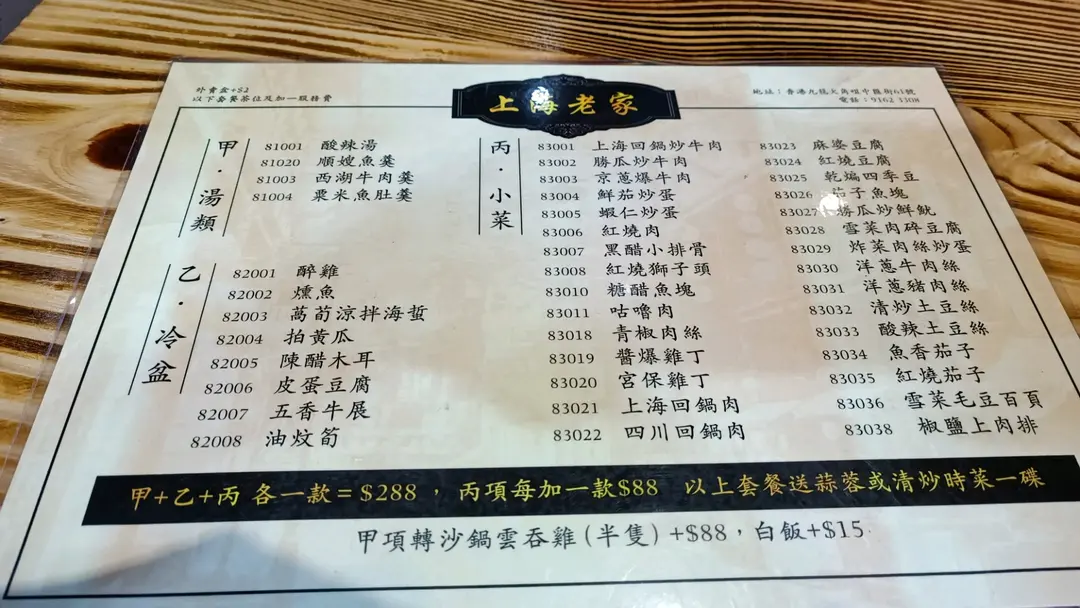 外賣盒+$2
以下套餐茶位及加一服務費
上海老家
地址：香港九龍大角咀中匯街61號
電話：9162 3308
甲·湯類
81001 酸辣湯
81020 順嫂魚羹
81003 西湖牛肉羹
81004 粟米魚肚羹
乙·冷盆
82001 醉雞
82002 燻魚
82003 萵荀涼拌海蜇
82004 拍黃瓜
82005 陳醋木耳
82006 皮蛋豆腐
82007 五香牛展
82008 油炆筍
丙·小菜
83001 上海回鍋炒牛肉
83002 勝瓜炒牛肉
83003 京蔥爆牛肉
83004 鮮茄炒蛋
83005 蝦仁炒蛋
83006 紅燒肉
83007 黑醋小排骨
83008 紅燒獅子頭
83010 糖醋魚塊
83011 咕嚕肉
83018 青椒肉絲
83019 醬爆雞丁
83020 宮保雞丁
83021 上海回鍋肉
83022 四川回鍋肉
83023 麻婆豆腐
83024 紅燒豆腐
83025 乾煸四季豆
83026 茄子魚塊
83027 勝瓜炒鮮魷
83028 雪菜肉碎豆腐
83029 炸菜肉絲炒蛋
83030 洋蔥牛肉絲
83031 洋蔥豬肉絲
83032 清炒土豆絲
83033 酸辣土豆絲
83034 魚香茄子
83035 紅燒茄子
83036 雪菜毛豆百頁
83038 椒鹽上肉排
甲+乙+丙 各一款=$288 ，丙項每加一款$88 以上套餐送蒜蓉或清炒時菜一碟
甲項轉沙鍋雲吞雞(半隻) +$88，白飯+$15